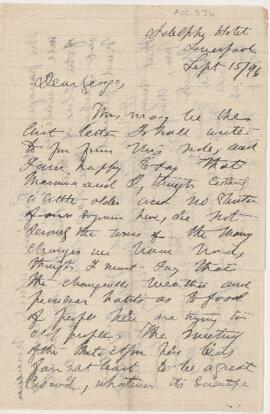 Adelphi Hotel
Liverpool
Sept 15/96
Dear George,
This may be the
last letter I shall write
to you from this side, and
I am happy to say that
Mamma and I, though certainly
a little older and no better
for our sojourn here, are not
the worse of the many
changes we have had,
though I must say that
the changeable weather and
peculiar habits as to food
of people here are trying to
old people. The meeting
of the British here bids
fair at least to be a great
crowd, whatever its scientific